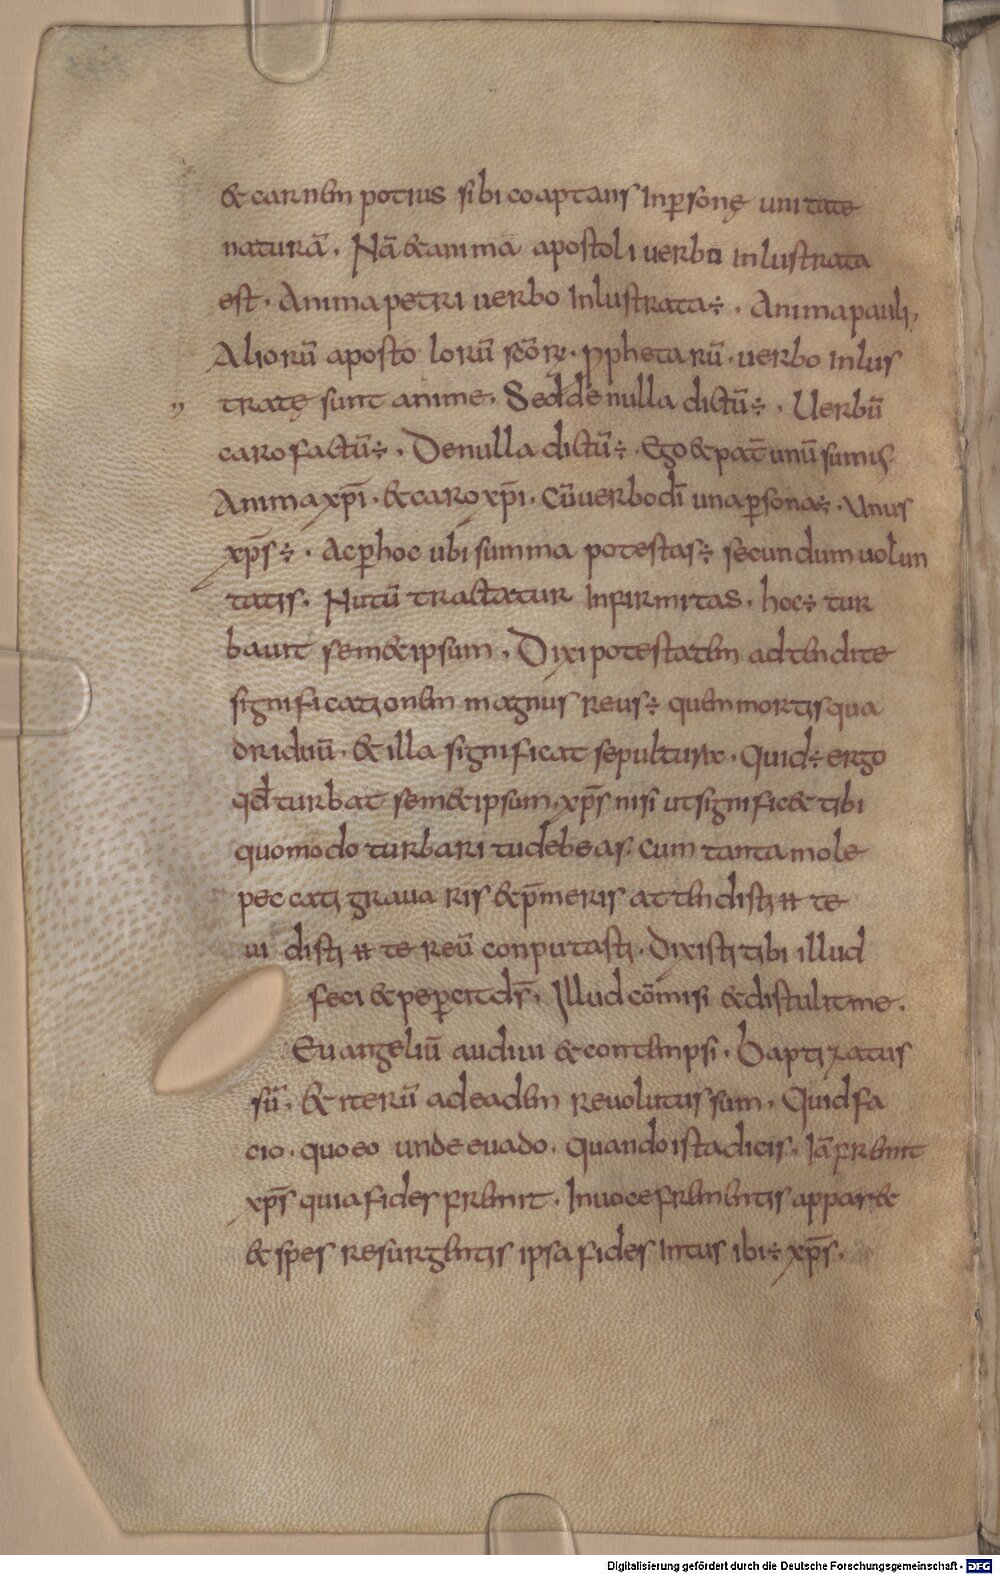 & carnem potius sibi coaptans Inp̄sonę unitate
naturā. Nā & anima apostoli uerbo Inlustrata
est. Anima petri uerbo Inlustrata ÷. Anima pauli,
Aliorū aposto lorū scōrꝝ. ꝓpheta rū. uerbo Inlus
tratę sunt anime. Sed de nulla dictū ÷. Uerbū
caro factū ÷. De nulla dictū ÷. Ego & pat̄ unū sumus
Anima xp̄i. & caro xp̄i. cū uerbo dī una p̄sona ÷. Unus
xp̄s ÷. Ac p̄ hoc ubi summa potestas ÷ secundum uolun
tatis. Nutū tractatur Infirmitas. hoc ÷ tur
bauit sem&ipsum. Dixi potestatem adtendite
significationem magnus reus ÷ quem mortis qua
driduū. & illa significat sepulturae. Quid ÷ ergo
qđ turbat sem&ipsum xp̄s nisi ut signific& tibi
quomodo turbari tu debeas. cum tanta mole
peccati graua ris & p̄meris attendisti te
ui disti te reū conputasti. Dixisti tibi illud
feci & pep̄cit dſ̄. Illud cōmisi & distulit me.
Euangeliū audiui & contempsi. Baptizatus
sū. & iterū ad eadem reuolutus sum. Quid fa
cio. quo eo unde euado. Quando ista dicis. Iā fremit
xp̄s quia fides fremit. In uoce frementis appar&
& spes resurgentis ipsa fides Intus ibi ÷ xp̄s.
Digitalisierung gefördert durch die Deutsche Forschungsgemeinschaft - DFG